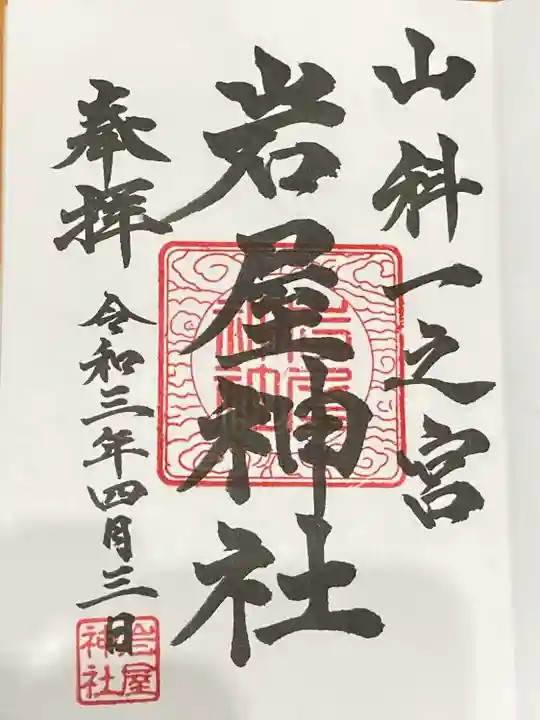 山科一之宮
岩屋神社
奉拝
令和三年四月三日
岩屋
神社